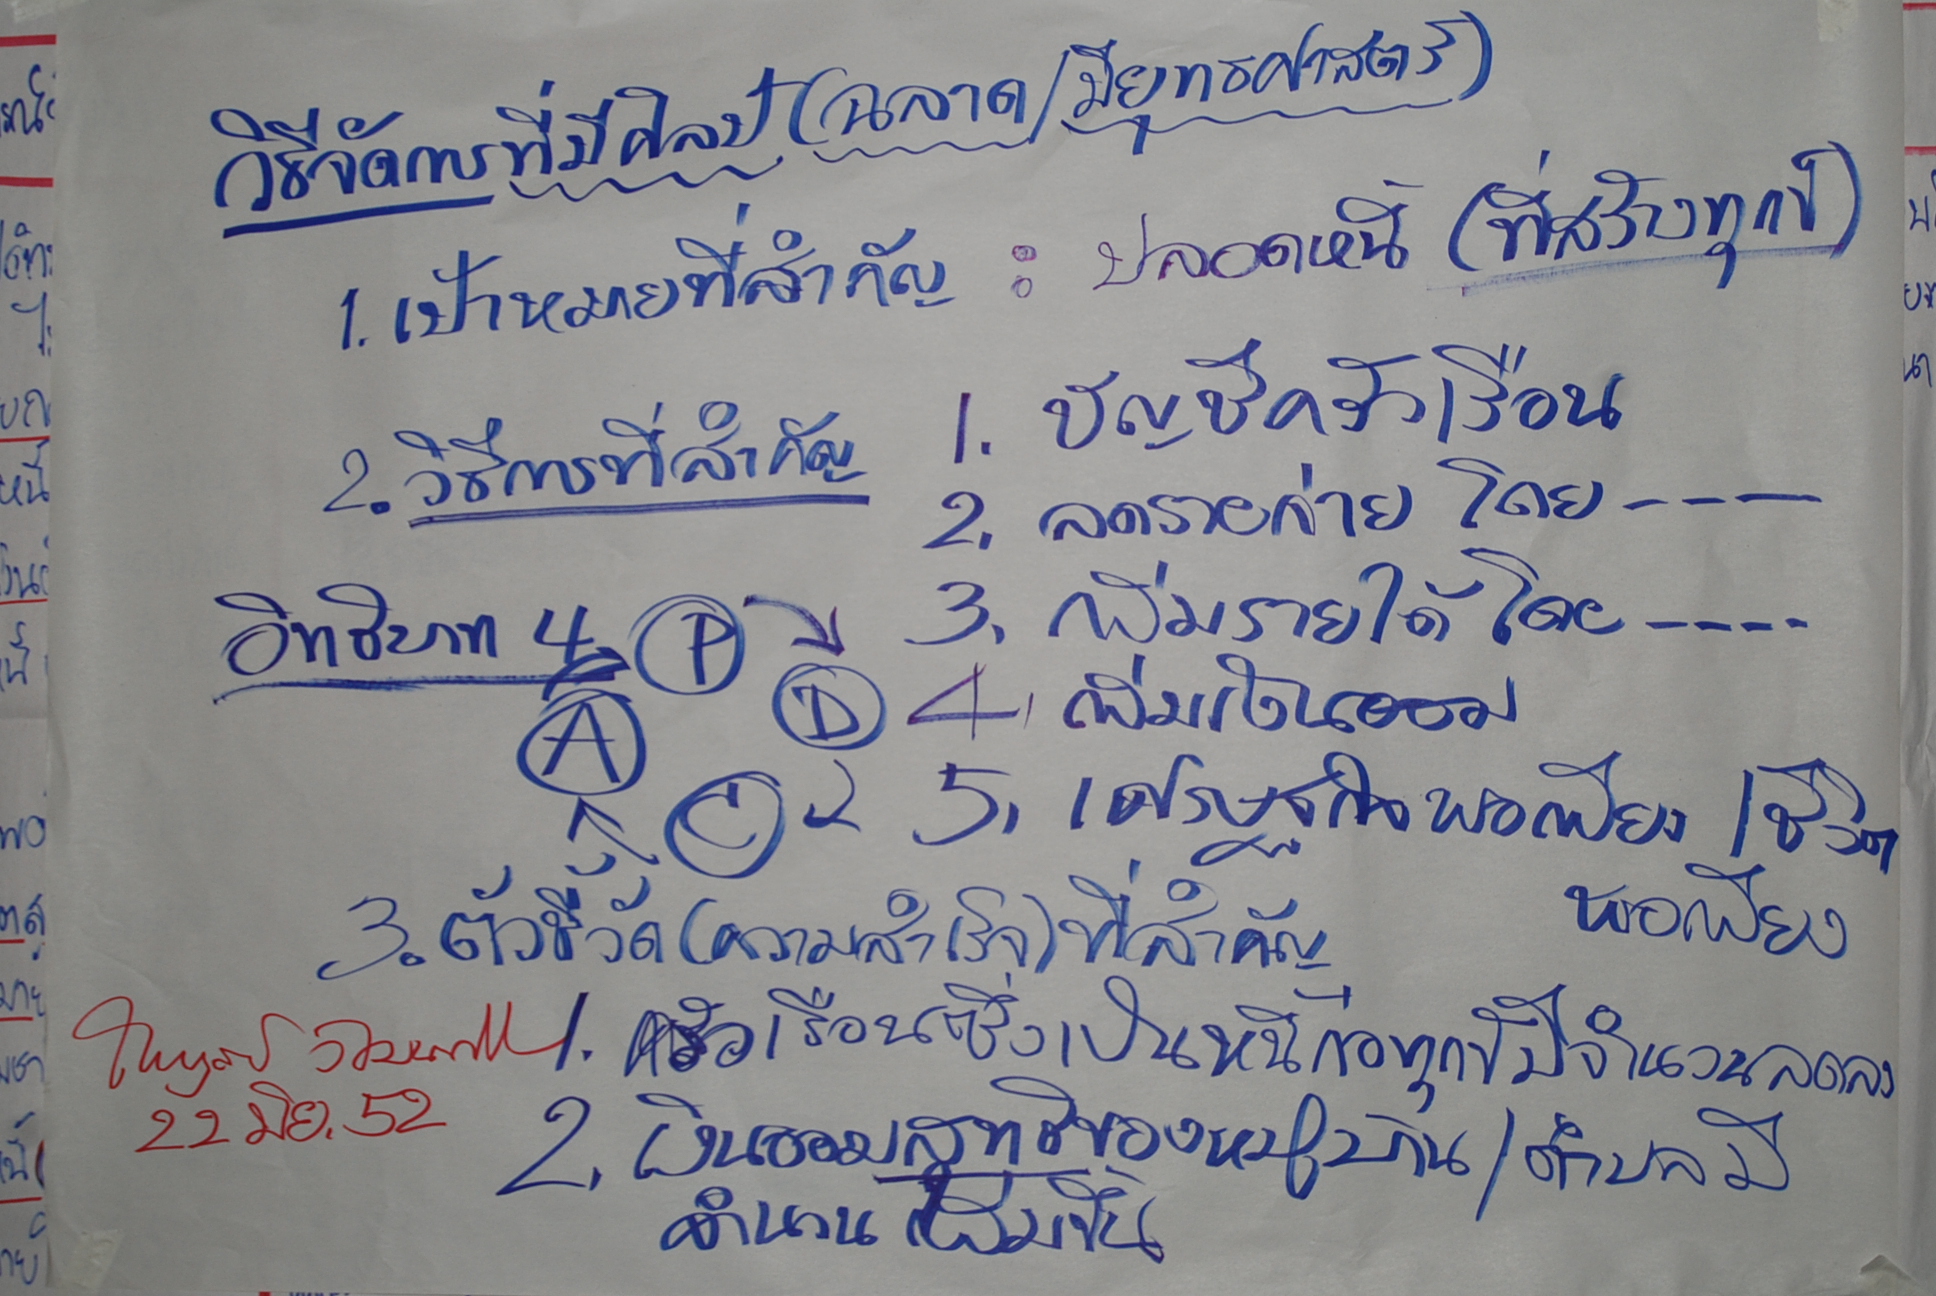 วิธีจัดการที่มีศิลป์ (ฉลาด/มียุทธศาสตร์)
1. เป้าหมายที่สำคัญ : ปลอดหนี้ (ที่สร้างทุกข์)
2. วิธีการที่สำคัญ
1. บัญชีครัวเรือน
2. ลดรายจ่าย โดย ----
3. เพิ่มรายได้ โดย ----
4. เพิ่มเงินออม
5. เศรษฐกิจพอเพียง /ชีวิต
พอเพียง
อิทธิบาท 4
P
D
C
A
3. ตัวชี้วัด (ความสำเร็จ) ที่สำคัญ
1. ครัวเรือนซึ่งเป็นหนี้ก่อทุกข์มีจำนวนลดลง
2. เงินออมสุทธิของหมู่บ้าน/ตำบลมี
จำนวนเพิ่มขึ้น
ไพบูลย์ วัฒนศิริธรรม
22 มิย. 52